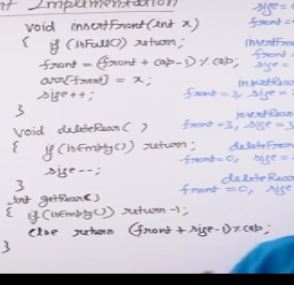 Implementation
void insertFront(int x)
{ if (isFull()) return;
front = (front + cap-1) % cap;
arr[front] = x;
size++;
}
void deleteRear( )
{ if (isEmpty()) return;
size--;
}
int getRear()
{ if (isEmpty()) return -1;
else return (front + size-1) % cap;
}
size=
front=
insertFront
front=
size=
insertRear
front=3, size=
insertRear
front=3, size=3
deleteFron
front=0, size=
deleteRear
front=0, size